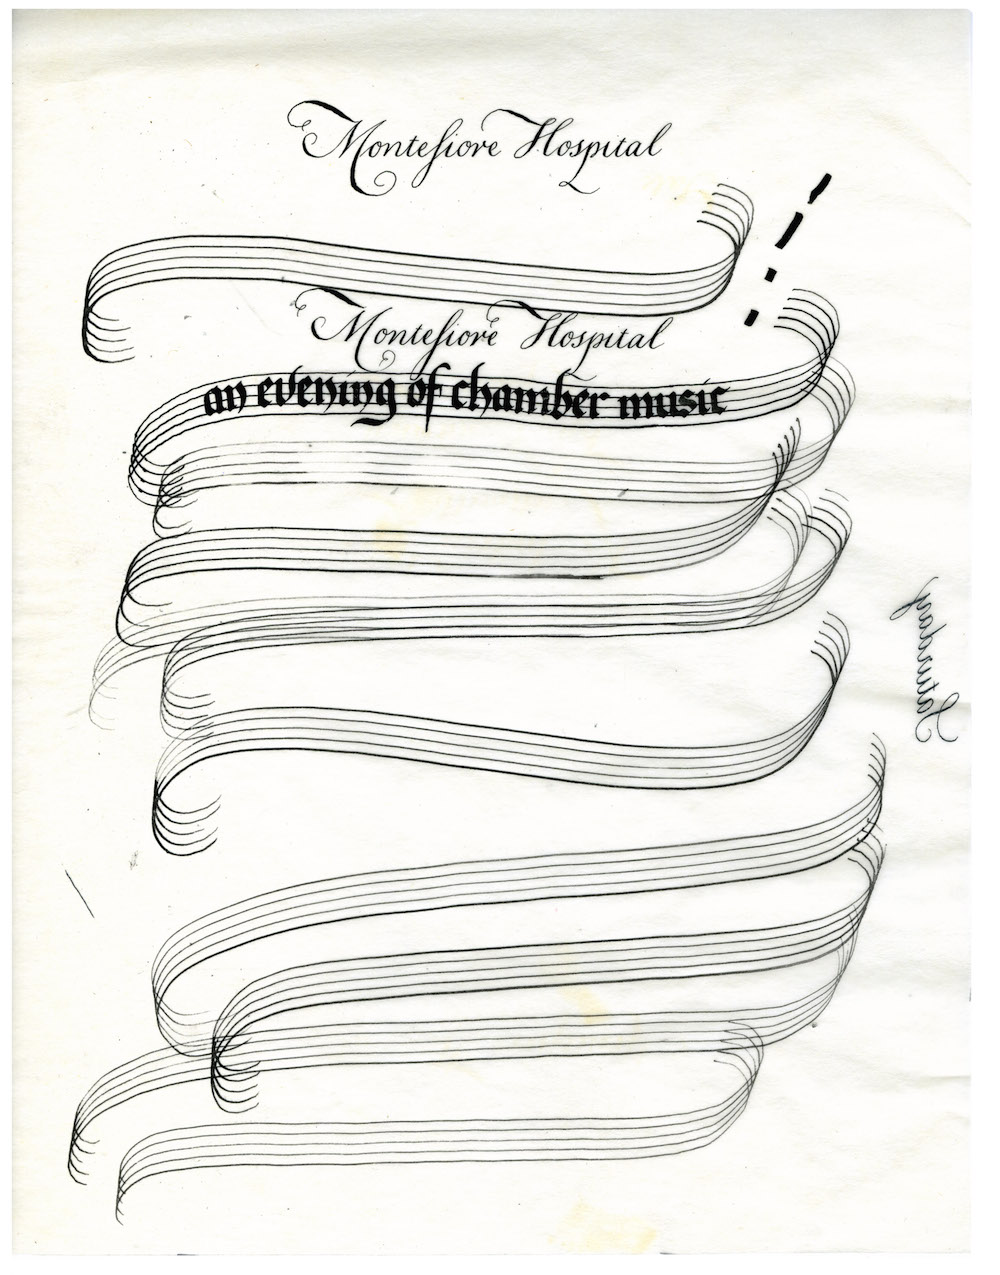 Montefiore Hospital
Montefiore Hospital
an evening of chamber music
Saturday